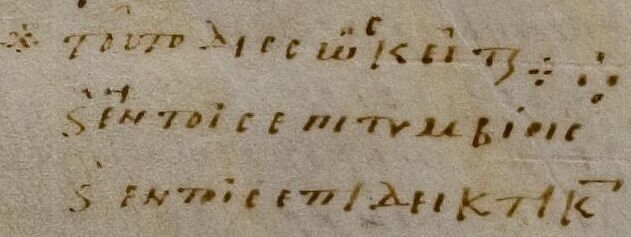 ※ τοῦτο δισσῶς κεῖτϗ ⁘
ϗ ἐν τοῖς ἐπιτυμβίοις
ϗ ἐν τοῖς ἐπιδεικτικ